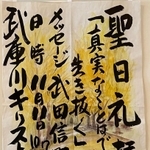 聖日礼拝
「真実なことばで
生き抜く」
メッセージ 武田信
日時 11月11日
武庫川キリスト